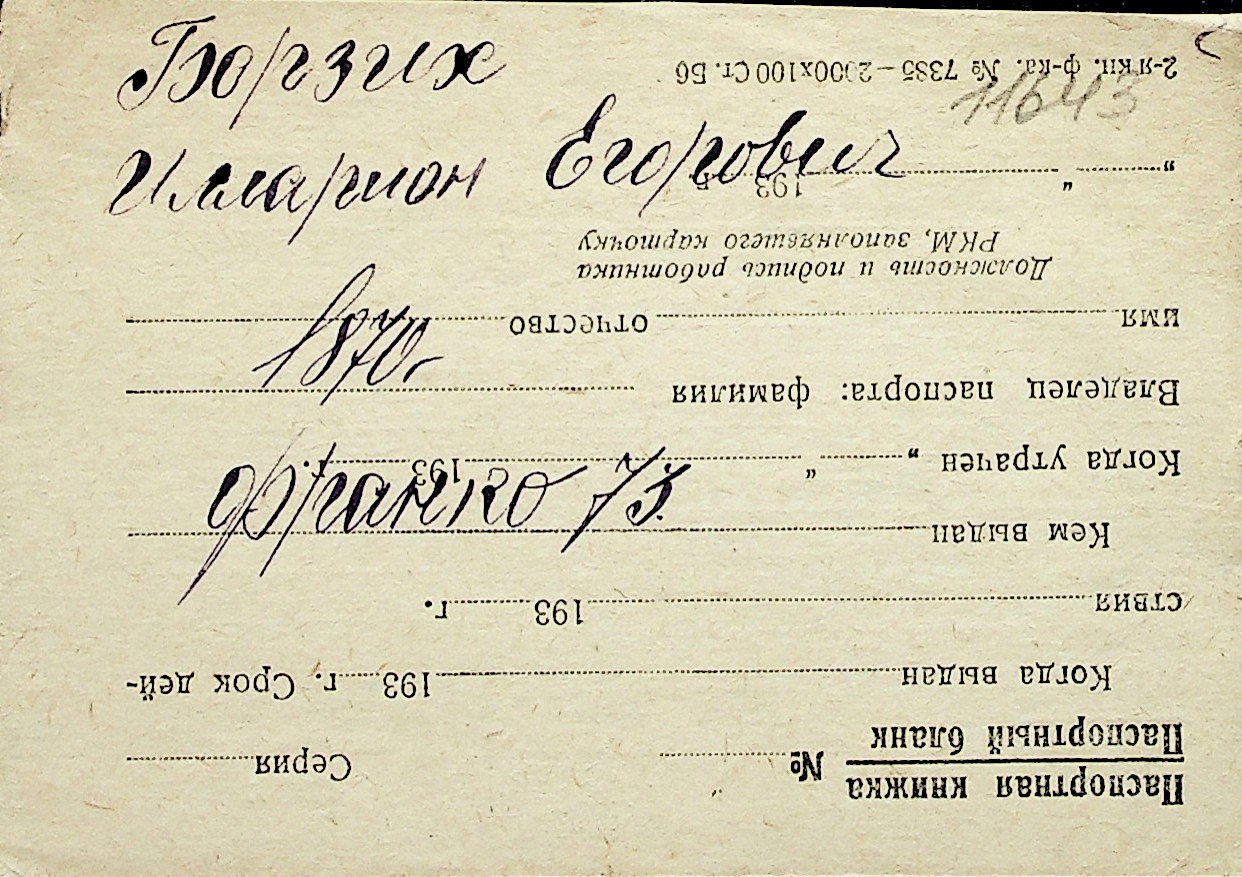 Борзих
Илларион Егорович
1870.
Франко 75.
11643
Паспортная книжка
Паспортный бланк
№ Серия
Когда выдан 193 г. Срок дей-
ствия 193 г.
Кем выдан
Когда утрачен „ “ 193 г.
Владелец паспорта: фамилия
имя отчество
Должность и подпись работника
РКМ, заполнявшего карточку
„ “ 193
2-я кн. ф-ка. № 7385—2000х100 Ст. Бб